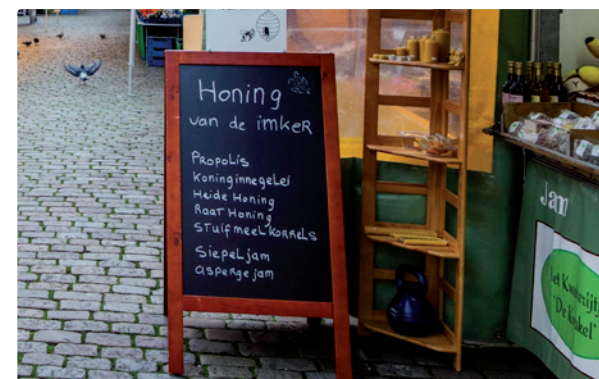 Honing
van de imker
Propolis
Koninginnegelei
Heide Honing
Raat Honing
Stuifmeelkorrels
Siepeljam
aspergejam
Jam
'De